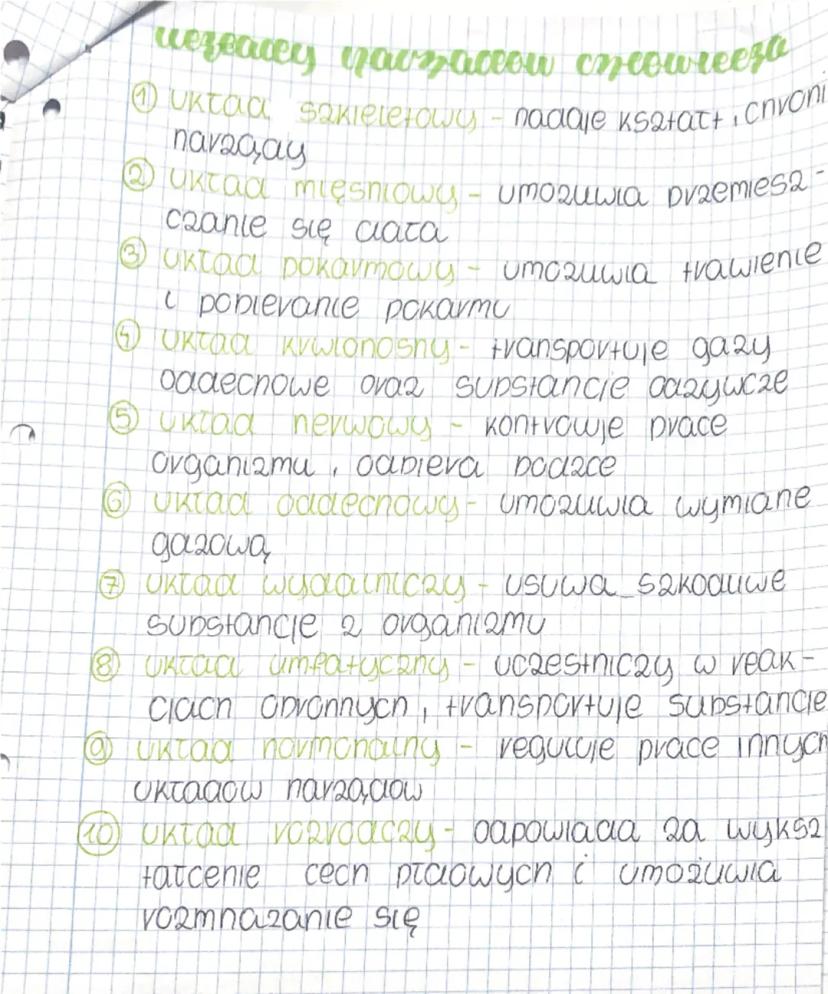 układy narządów człowieka
① układ szkieletowy – nadaje kształt, chroni
narządy
② układ mięśniowy – umożliwia przemiesz-
czanie się ciała
③ układ pokarmowy – umożliwia trawienie
i pobieranie pokarmu
④ układ krwionośny – transportuje gazy
oddechowe oraz substancje odżywcze
⑤ układ nerwowy – kontroluje prace
organizmu, odbiera bodźce
⑥ układ oddechowy – umożliwia wymianę
gazową
⑦ układ wydalniczy – usuwa szkodliwe
substancje z organizmu
⑧ układ limfatyczny – uczestniczy w reak-
cjach obronnych, transportuje substancje
⑨ układ hormonalny – reguluje prace innych
układów narządów
⑩ układ rozrodczy – odpowiada za wyksz
tałcenie cech płciowych i umożliwia
rozmnażanie się